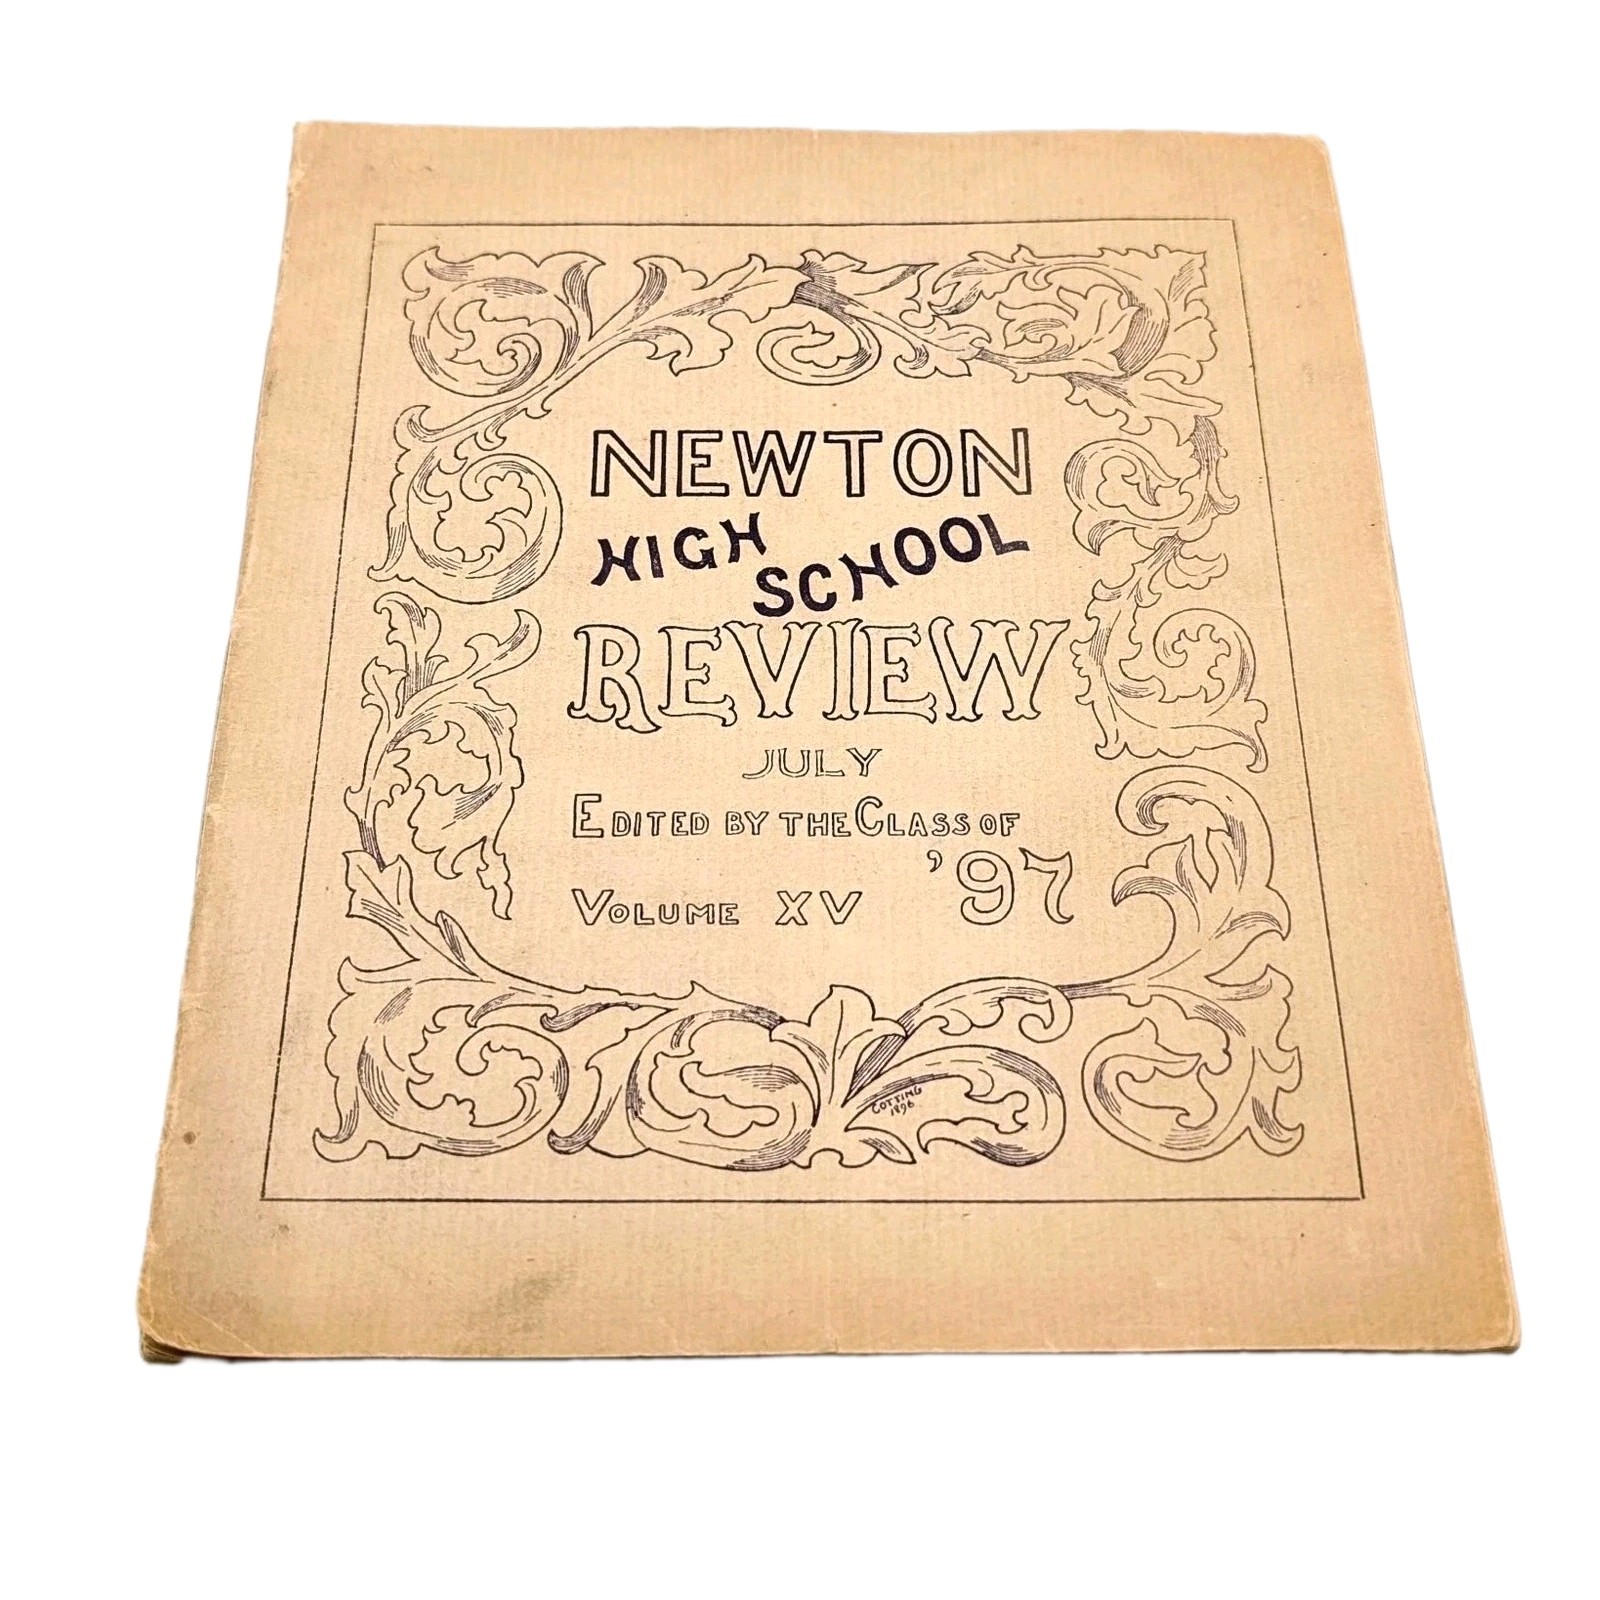 NEWTON
HIGH SCHOOL
REVIEW
JULY
EDITED BY THE CLASS OF
'97
VOLUME XV
COTTING
1896